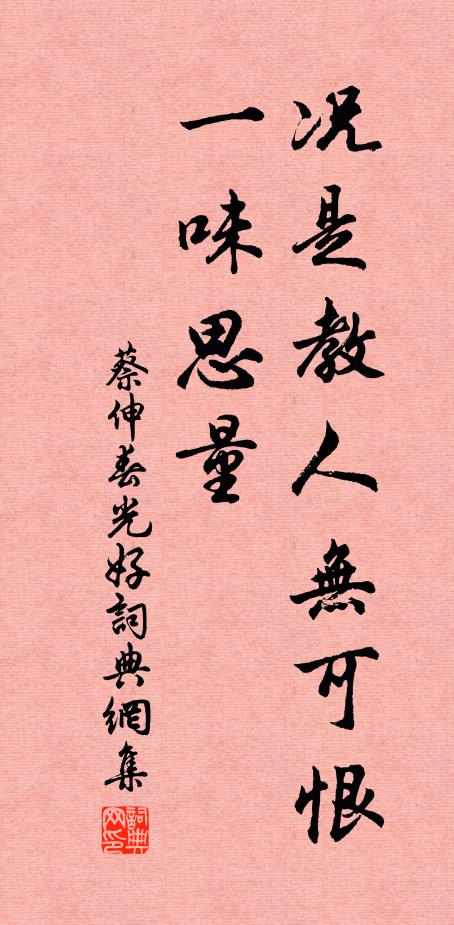 况是教人無可恨
一味思量
蔡伸春光好詞典網集
詞典
网印